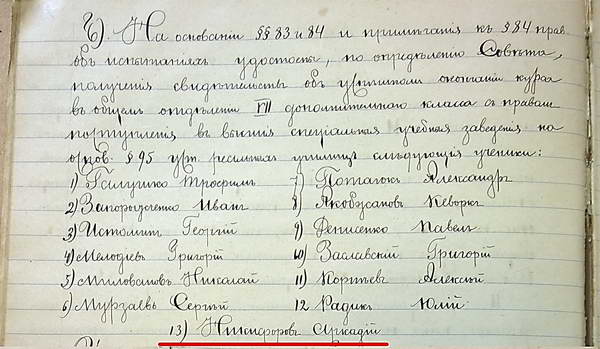 Б). На основаніи §§ 83 и 84 и примѣчанія къ § 84 прав.
объ испытаніяхъ удостоены, по опредѣленію Совѣта,
полученія свидѣтельствъ объ успѣшномъ окончаніи курса
въ общемъ отдѣленіи VII дополнительнаго класса съ правами
поступленія въ высшія спеціальныя учебныя заведенія на
основ. § 95 уст. реальныхъ училищъ слѣдующія ученики:
1) Трофимъ 7) Александръ
2) Загорудченко Иванъ 8) Якобусовъ Кеворкъ
3) Истоминъ Георгій 9) Денисенко Павелъ
4) Мелодіевъ Григорій 10) Заславскій Григорій
5) Миловановъ Николай 11) Корнѣевъ Алексѣй
6) Мурзаевъ Сергѣй 12 Радикъ Юлій
13) Никифоровъ Аркадій